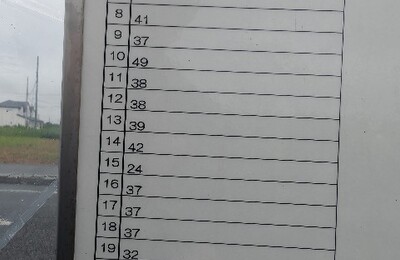 8 41
9 37
10 49
11 38
12 38
13 39
14 42
15 24
16 37
17 37
18 37
19 32